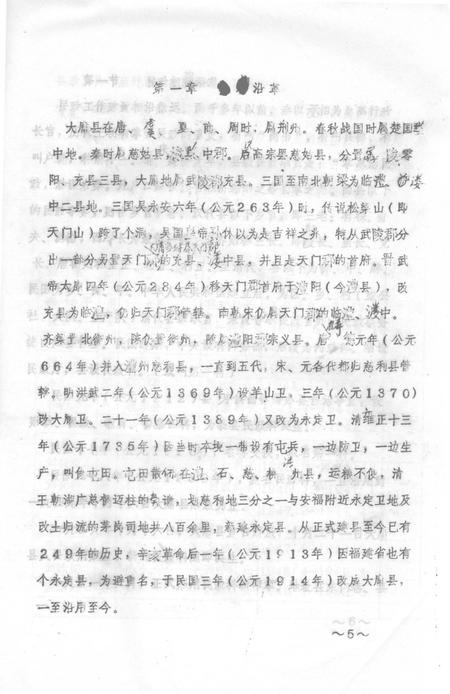 第一章 沿革
大庸县在唐、虞、夏、商、周时,属荆州。春秋战国时属楚国黔
中地。秦时属慈姑县,黔中郡。后高宗墨慈姑县,分置 零
阳、充县三县,大庸地属武陵郡充县。三国至南北朝梁为临澧、溇
中二县地。三国吴永安六年(公元263年)时,传说松梁山(即
天门山)跨了个洞,吴国 帝 休以为是吉祥之兆,特从武陵郡分
出一部分另置天门郡的充县、溇中县,并且是天门郡的首府。晋武
帝太康四年(公元284年)移天门郡首府于澧阳(今澧县),改
充县为临澧,仍归天门郡管辖。南朝宋仍属天门郡的临澧、溇中。
齐 北衡州,陈 州,隋属澧阳郡崇义县。唐麟德元年(公元
664年)并入澧州慈利县,一直到五代,宋、元各代都归慈利县管
辖。明洪武二年(公元1369年)设羊山卫,三年(公元1370)
改大庸卫。二十一年(公元1389年)又改为永定卫。清雍正十三
年(公元1735年)因当时本境一带设有屯兵,一边防卫,一边生
产,叫做屯田。屯田散佈在澧、石、慈、桃 州县,运粮不便,清
王朝湖广总督迈柱的奏请,划慈利地三分之一与安福附近永定卫地及
改土归流的茅岗司地共八百余里,新建永定县。从正式建县至今已有
249年的历史,辛亥革命后一年(公元1913年)因福建省也有
个永定县,为避重名,于民国三年(公元1914年)改成大庸县,
一至沿用至今。
~6~
~5~